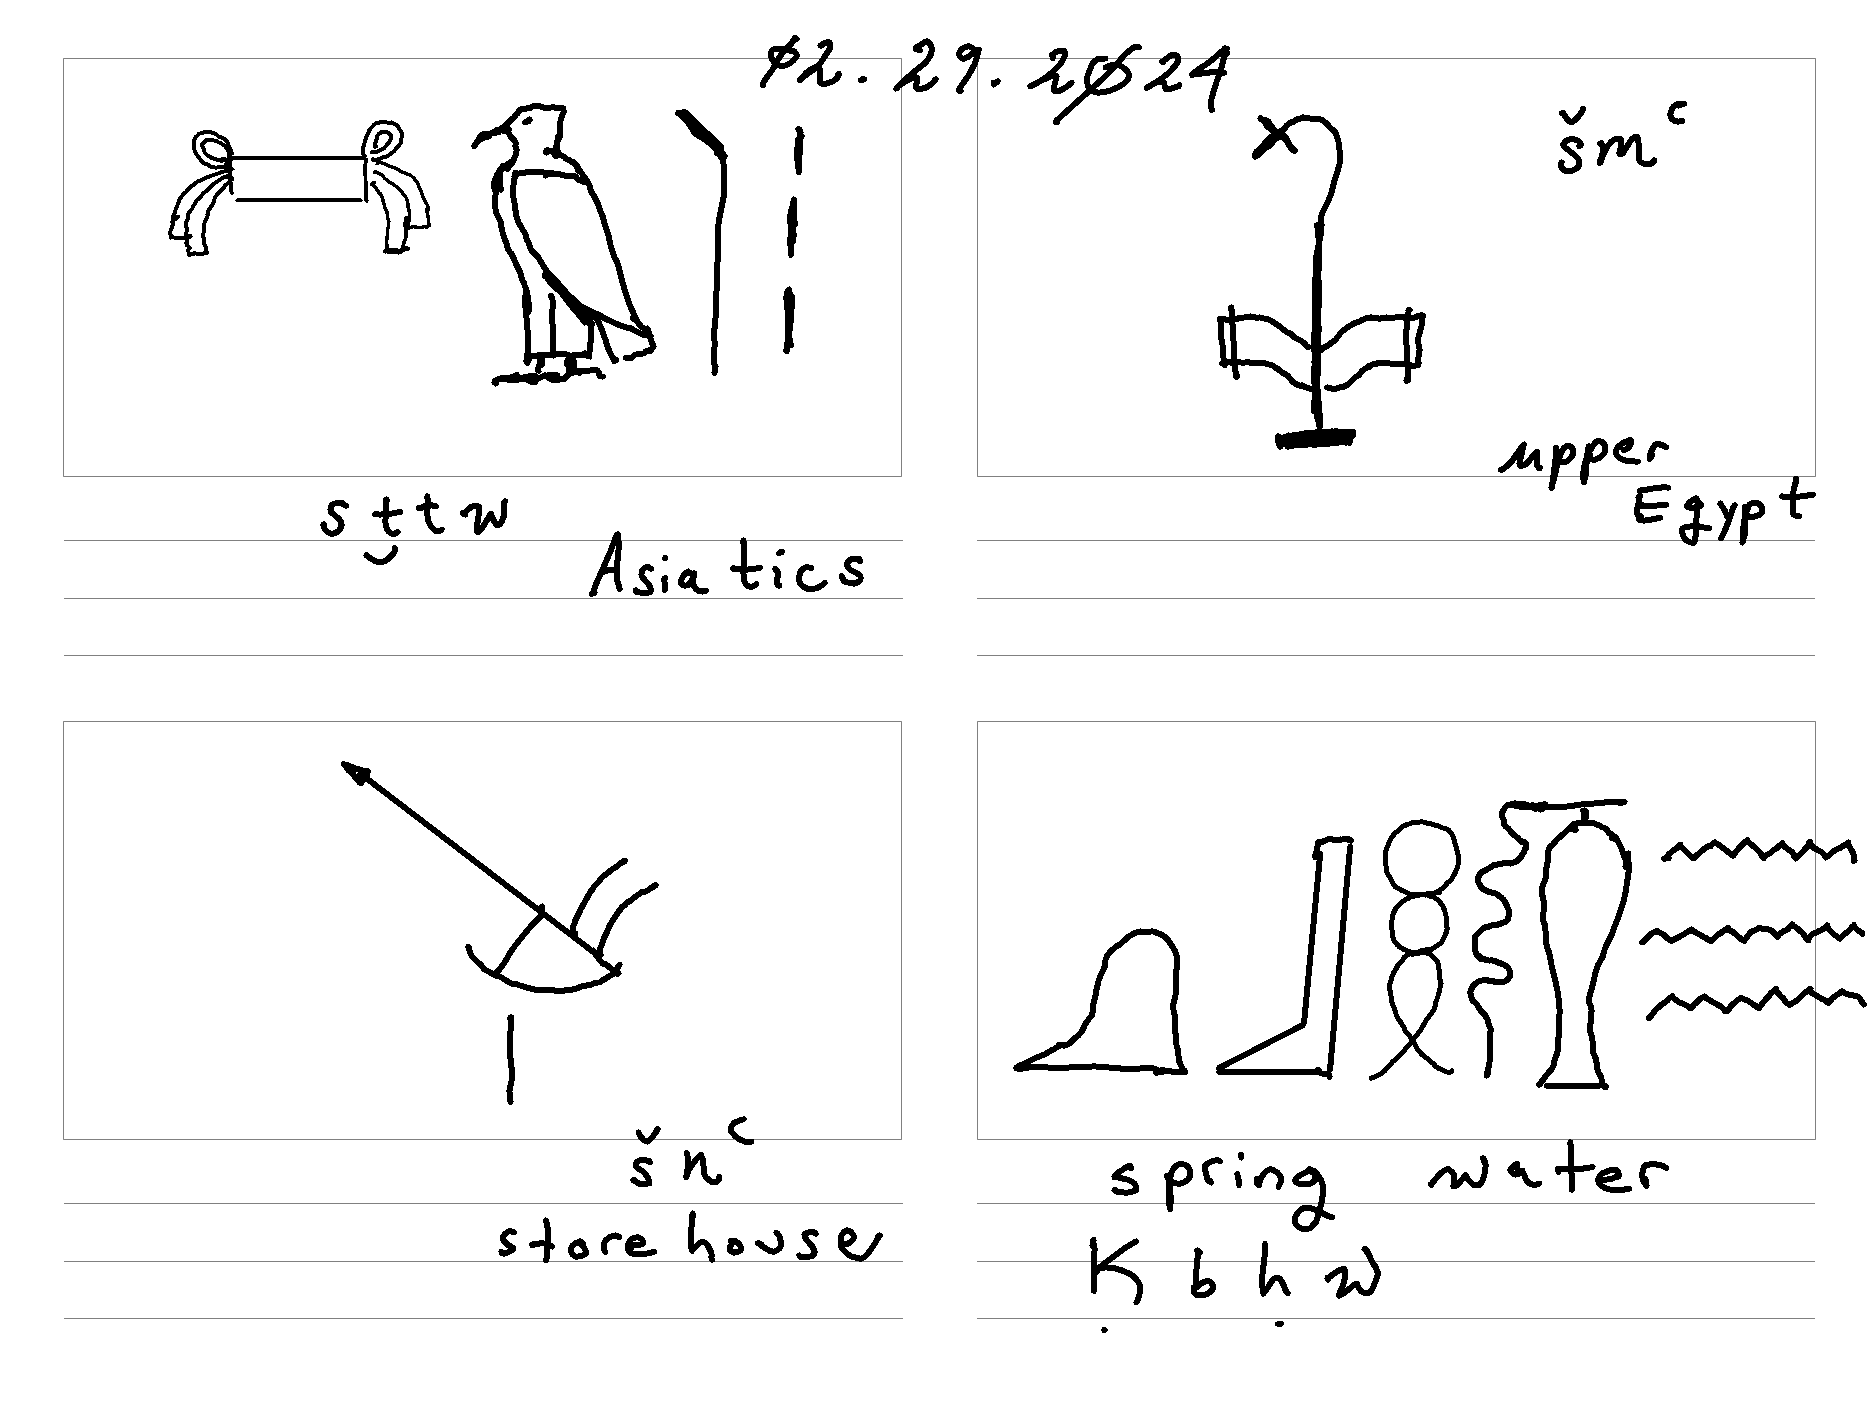 02.29.2024
sṯtw
Asiatics
šmꜥ
upper
Egypt
šnꜥ
storehouse
spring water
Ḳbḥw